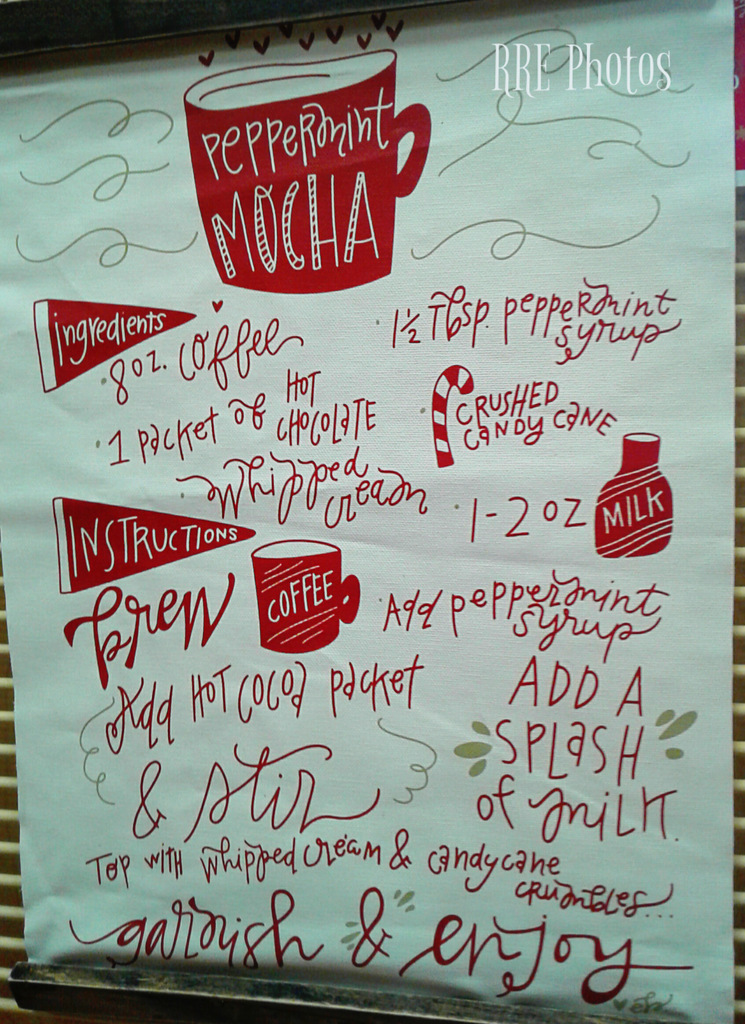 RRE Photos
PEPPERMINT
MOCHA
INGREDIENTS
8 oz. COFFEE
1 PACKET OF HOT
CHOCOLATE
WHIPPED
CREAM
1½ Tbsp. PEPPERMINT
SYRUP
CRUSHED
CANDY CANE
1-2 oz MILK
INSTRUCTIONS
brew COFFEE
Add HOT COCOA PACKET
& stir
Add PEPPERMINT
SYRUP
ADD A
SPLASH
of MILK.
TOP WITH WHIPPED CREAM & CANDYCANE
CRUMBLES...
garnish & enjoy